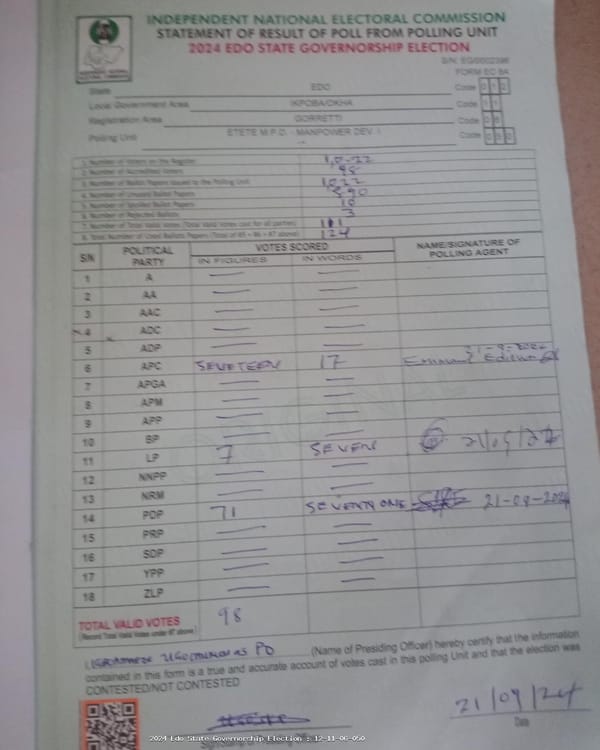 INDEPENDENT NATIONAL ELECTORAL COMMISSION
STATEMENT OF RESULT OF POLL FROM POLLING UNIT
2024 EDO STATE GOVERNORSHIP ELECTION
FORM EC 8A
State EDO Code 0 1 2
Local Government Area IKPOBA/OKHA Code 1 1
Registration Area GORRETTI Code 0 6
Polling Unit ETETE M.P.D. - MANPOWER DEV. I Code
1. Number of Voters on the Register 1,022
2. Number of Accredited Voters 98
3. Number of Ballot Papers Issued to the Polling Unit 1,022
4. Number of Unused Ballot Papers
5. Number of Spoiled Ballot Papers 10
6. Number of Rejected Ballots 3
7. Number of Total Valid Votes (Total Valid Votes cast for all parties) 111
8. Total Number of Used Ballot Papers (Total of #5 + #6 + #7 above) 124
S/N POLITICAL PARTY VOTES SCORED NAME/SIGNATURE OF POLLING AGENT
IN FIGURES IN WORDS
1 A — —
2 AA — —
3 AAC — —
4 ADC — —
5 ADP — —
6 APC SEVETEEN 17
7 APGA — —
8 APM — —
9 APP — —
10 BP — —
11 LP 7 SEVEN 21/09/24
12 NNPP — —
13 NRM — —
14 PDP 71 SEVENTY ONE 21-09-2024
15 PRP — —
16 SDP — —
17 YPP — —
18 ZLP — —
TOTAL VALID VOTES 98
(Record Total Valid Votes under #7 above)
I as PO (Name of Presiding Officer) hereby certify that the information
contained in this form is a true and accurate account of votes cast in this polling Unit and that the election was
CONTESTED/NOT CONTESTED
21/09/24
Date
2024 Edo State Governorship Election : 12-11-06-050